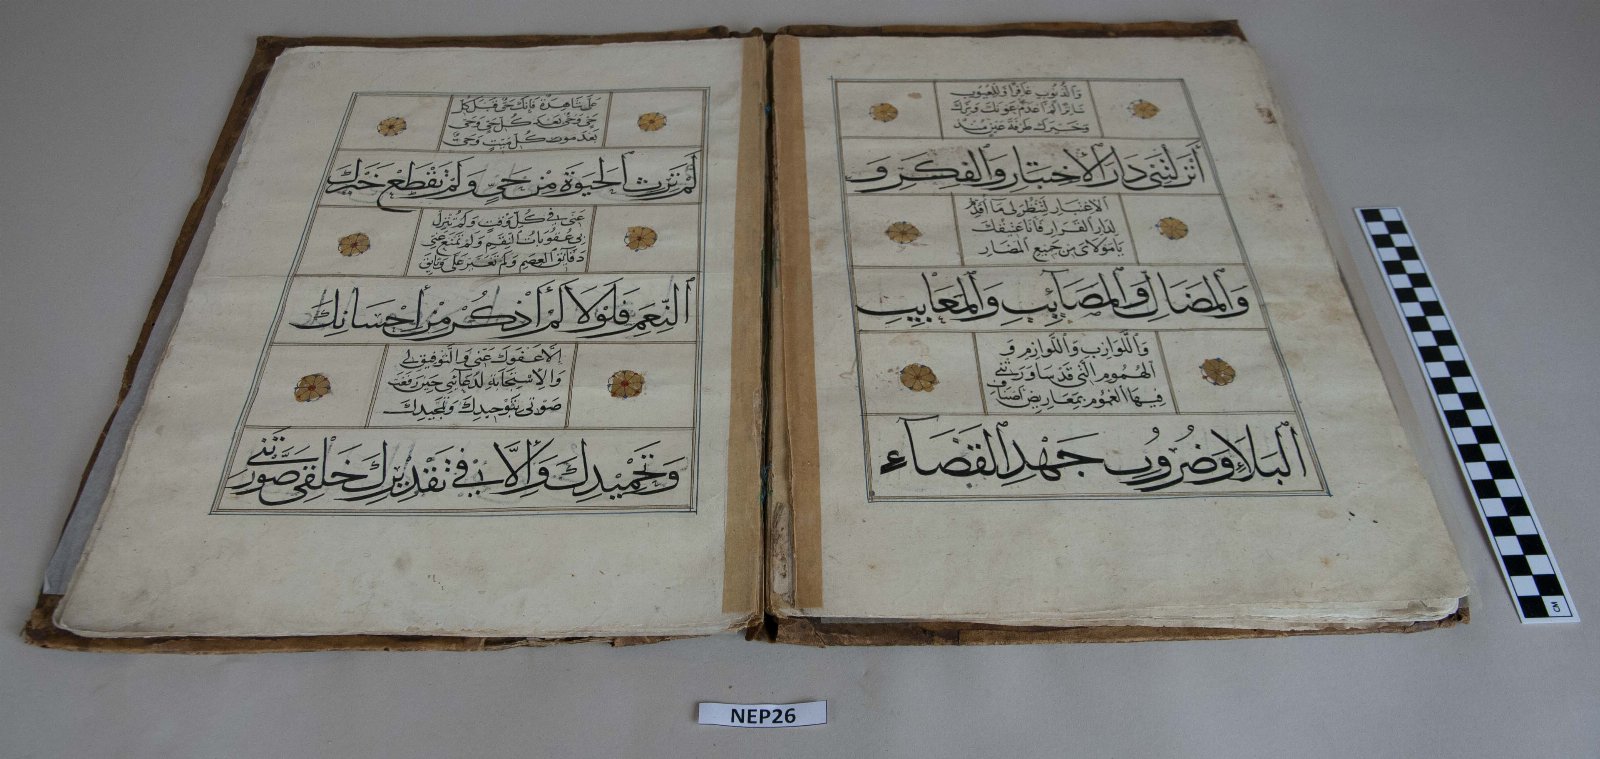 وَالذُّنُوبِ غَافِرًا وَلِلْعُيُوبِ
سَاتِرًا لَمْ اَعْدَمْ عَوْنَكَ وَبِرَّكَ
وَخَيْرَكَ طَرْفَةَ عَيْنٍ مُنْذُ
أَنْزَلْتَنِى دَارَ الْاِخْتِبَارِ وَالْفِكْرِ وَ
الْاِعْتِبَارِ لِتَنْظُرَ لِى مَا اُقَدِّمُ
لِدَارِ الْقَرَارِ فَاَنَا عَتِيقُكَ
يَا مَوْلَاىَ مِنْ جَمِيعِ الْمَضَارِ
وَالْمَضَالِ وَالْمَصَآئِبِ وَالْمَعَايِبِ
وَاللَّوَازِبِ وَاللَّوَازِمِ وَ
الْهُمُومِ الَّتِى قَدْ سَاوَرَتْنِى
فِيهَا الْغُمُومُ بِمَعَارِيضِ اَصْنَافِ
الْبَلَاءِ وَضُرُوبِ جَهْدِ الْقَضَآءِ
عَلَى شَاهِدَةٌ فَإِنَّكَ حَىٌّ قَبْلَ كُلِّ
حَىٍّ وَحَىٌّ بَعْدَ كُلِّ حَىٍّ وَحَىٌّ
بَعْدَ مَوْتِ كُلِّ مَيِّتٍ وَحَىٌّ
لَمْ تَرِثِ الْحَيٰوةَ مِنْ حَىٍّ وَلَمْ تَقْطَعْ خَيْرَكَ
عَنِّى فِى كُلِّ وَقْتٍ وَلَمْ تُنْزِلْ
بِى عُقُوبَاتِ النِّقَمِ وَلَمْ تَمْنَعْ عَنِّى
دَقَائِقَ الْعِصَمِ وَلَمْ تُغَيِّرْ عَلَىَّ وَثَائِقَ
النِّعَمِ فَلَوْلَا لَمْ أَذْكُرْ مِنْ أِحْسَانِكَ
اِلَّا عَفْوَكَ عَنِّى وَالتَّوْفِيقَ لِى
وَالْاِسْتِجَابَةَ لِدُعَآئِى حِينَ رَفَعْتُ
صَوْتِى بِتَوْحِيدِكَ وَتَمْجِيدِكَ
وَتَحْمِيدِكَ وَأِلَّا فِى تَقْدِيرِكَ خَلْقِى حِينَ صَوَّرْتَنِى
NEP26
CM